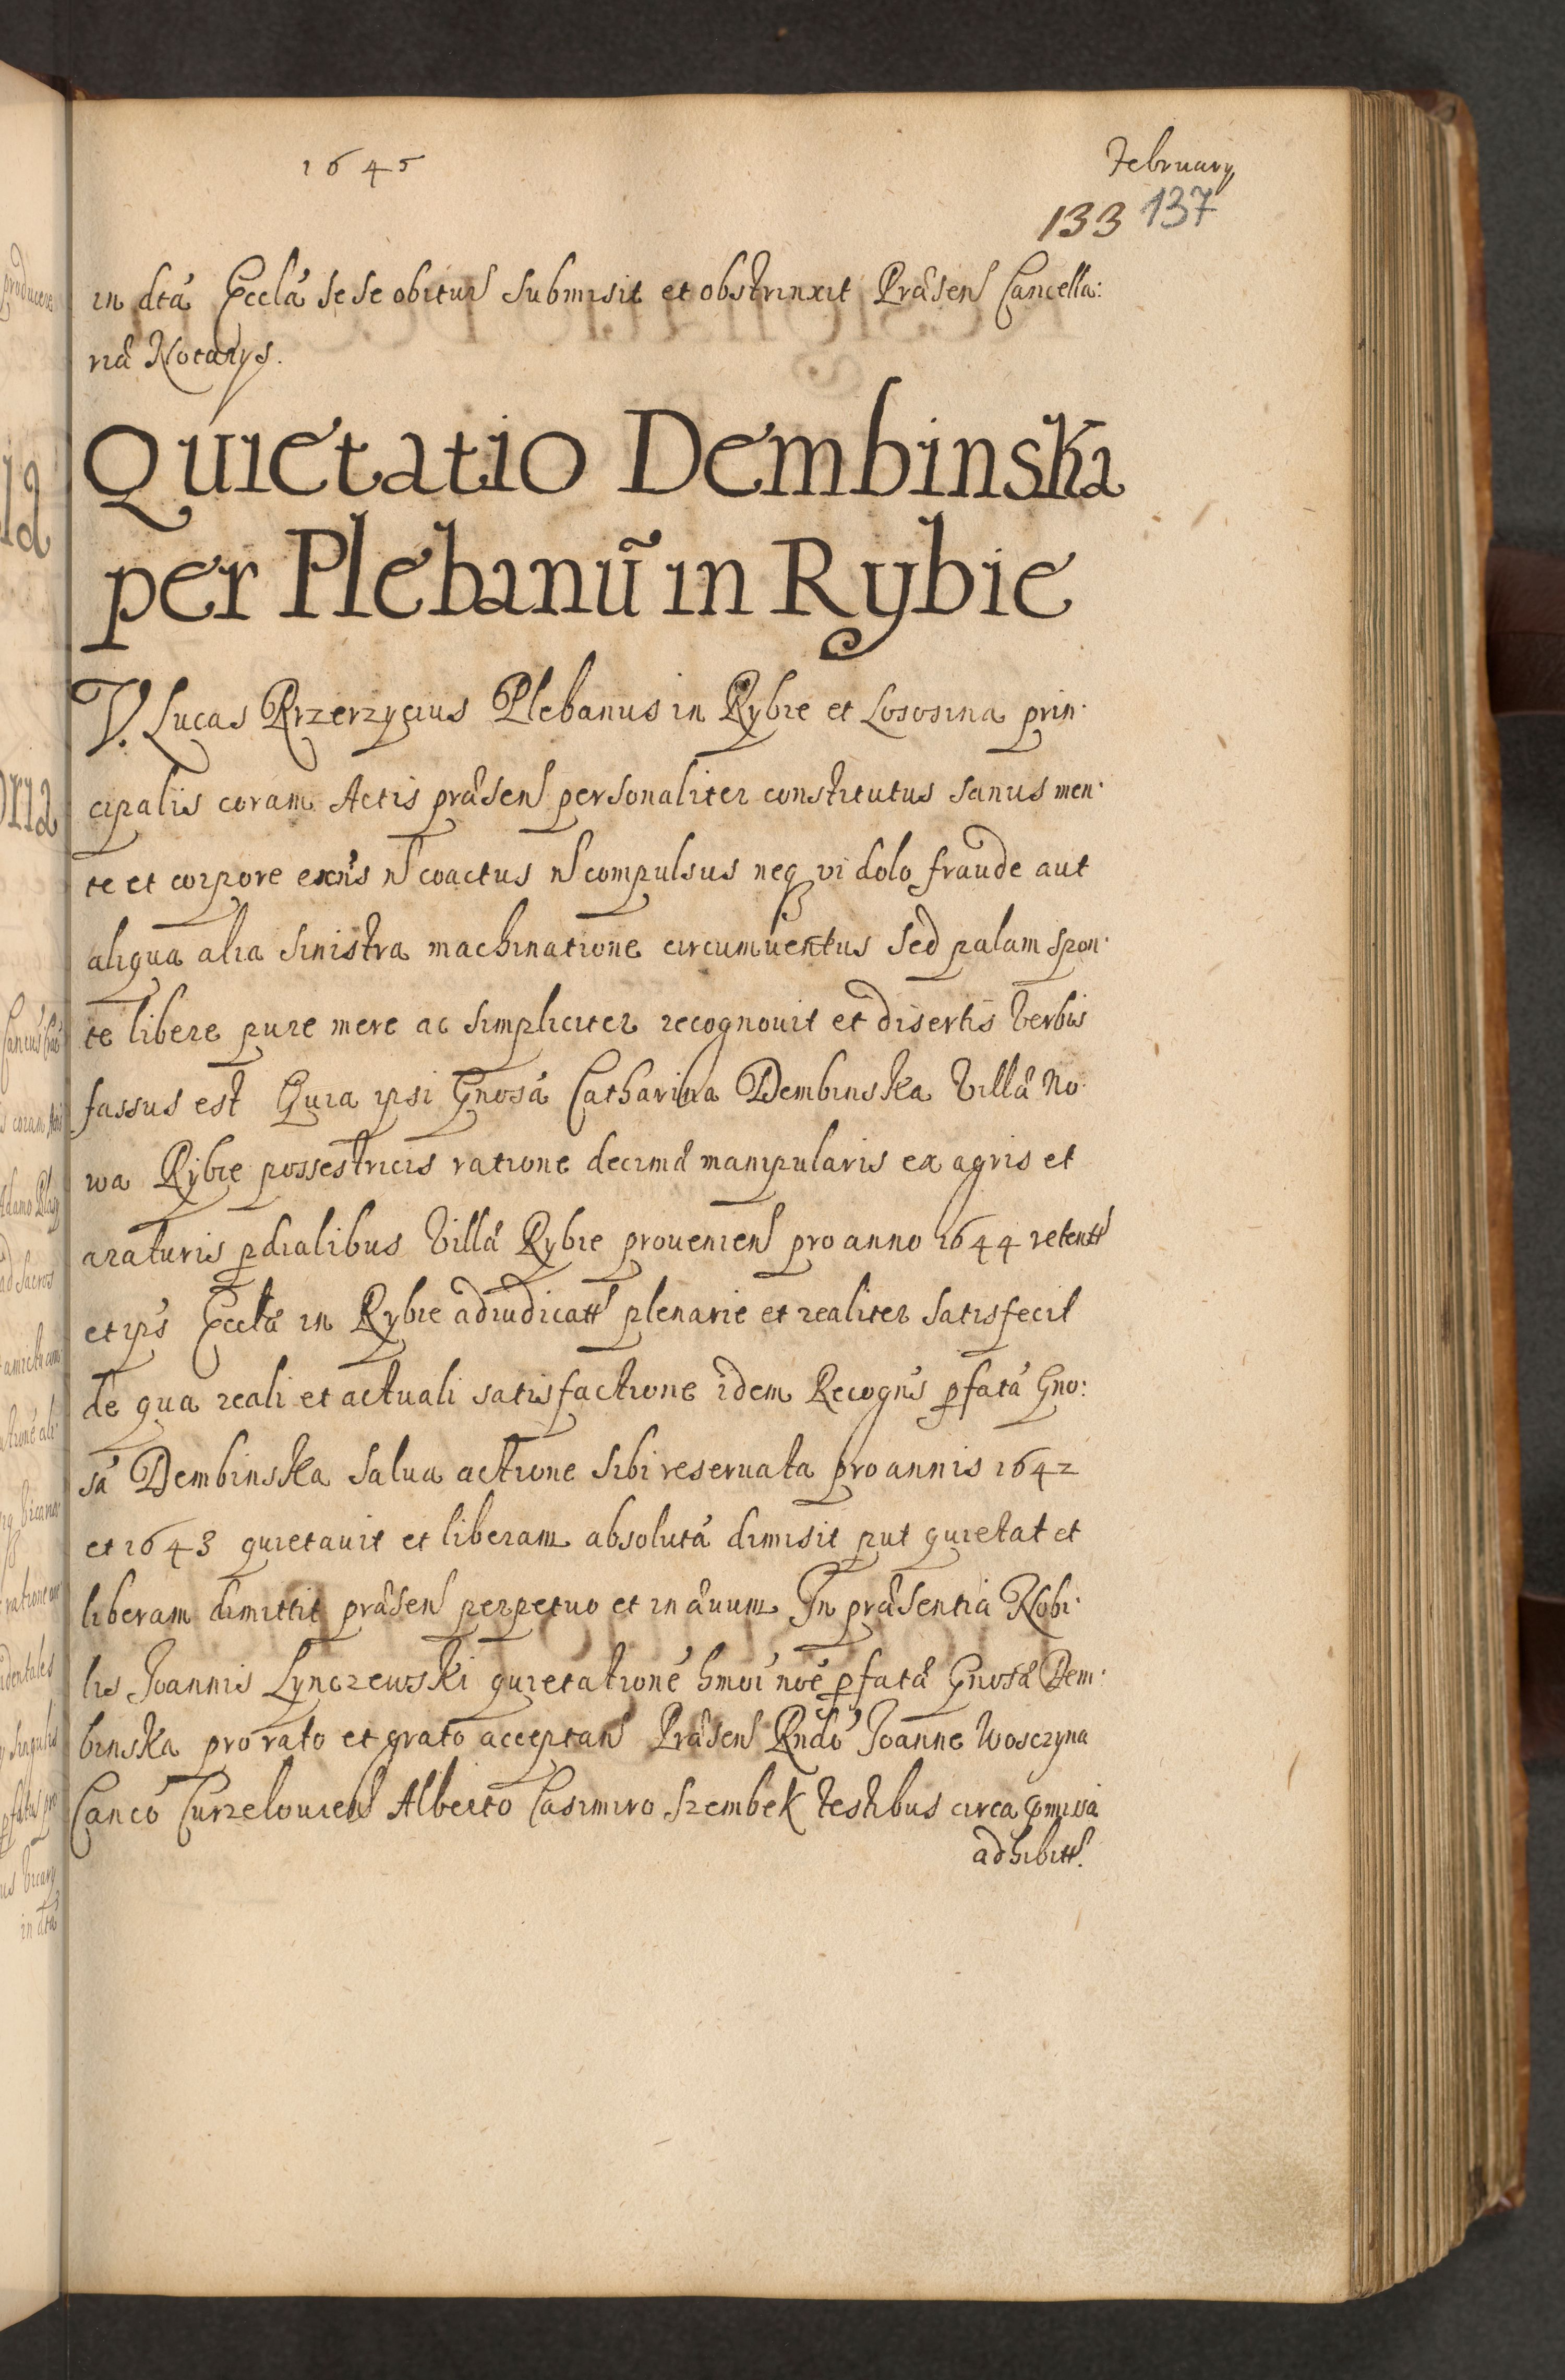 1645 Februarij
133 137
in dtá Ecclá se se obitur submisit et obstrinxit Præsen Cancella:
riæ Notarys.
Quietatio Dembinska
per Plebanũ in Rybie
V. Lucas Przerzycius Plebanus in Rybie et Lososina prin:
cipalis coram Actis præsen personaliter constitutus sanus men:
te et corpore exñs ñ coactus ñ compulsus neq vi dolo fraude aut
aliqua alia sinistra machinatione circumuentus sed palam spon:
te libere pure mere ac simpliciter recognouit et disertis verbis
fassus est Quia ipsi Gnosá Catharina Dembinska Villæ No
wa Rybie possestricis ratione decimæ manipularis ex agris et
araturis pdialibus Villæ Rybie prouenien pro anno 1644 retentt
et ips Ecclæ in Rybie adiudicatt plenarie et realiter satisfecit
de qua reali et actuali satisfactione idem Recogns pfatá Gno:
sá Dembinska salua actione sibi reseruata pro annis 1642
et 1643 quietauit et liberam absolutá dimisit put quietat et
liberam dimittit præsen perpetuo et in æuum In præsentia Nobi:
lis Joannis Lynczewski quietationé hmoi noé pfatæ Gnosæ Dem:
binska pro rato et grato acceptan Præsen Rndó Joanne Wosczyna
Cancó Curzelouien Alberto Casimiro Szembek testibus circa pmissa
adhibitt.